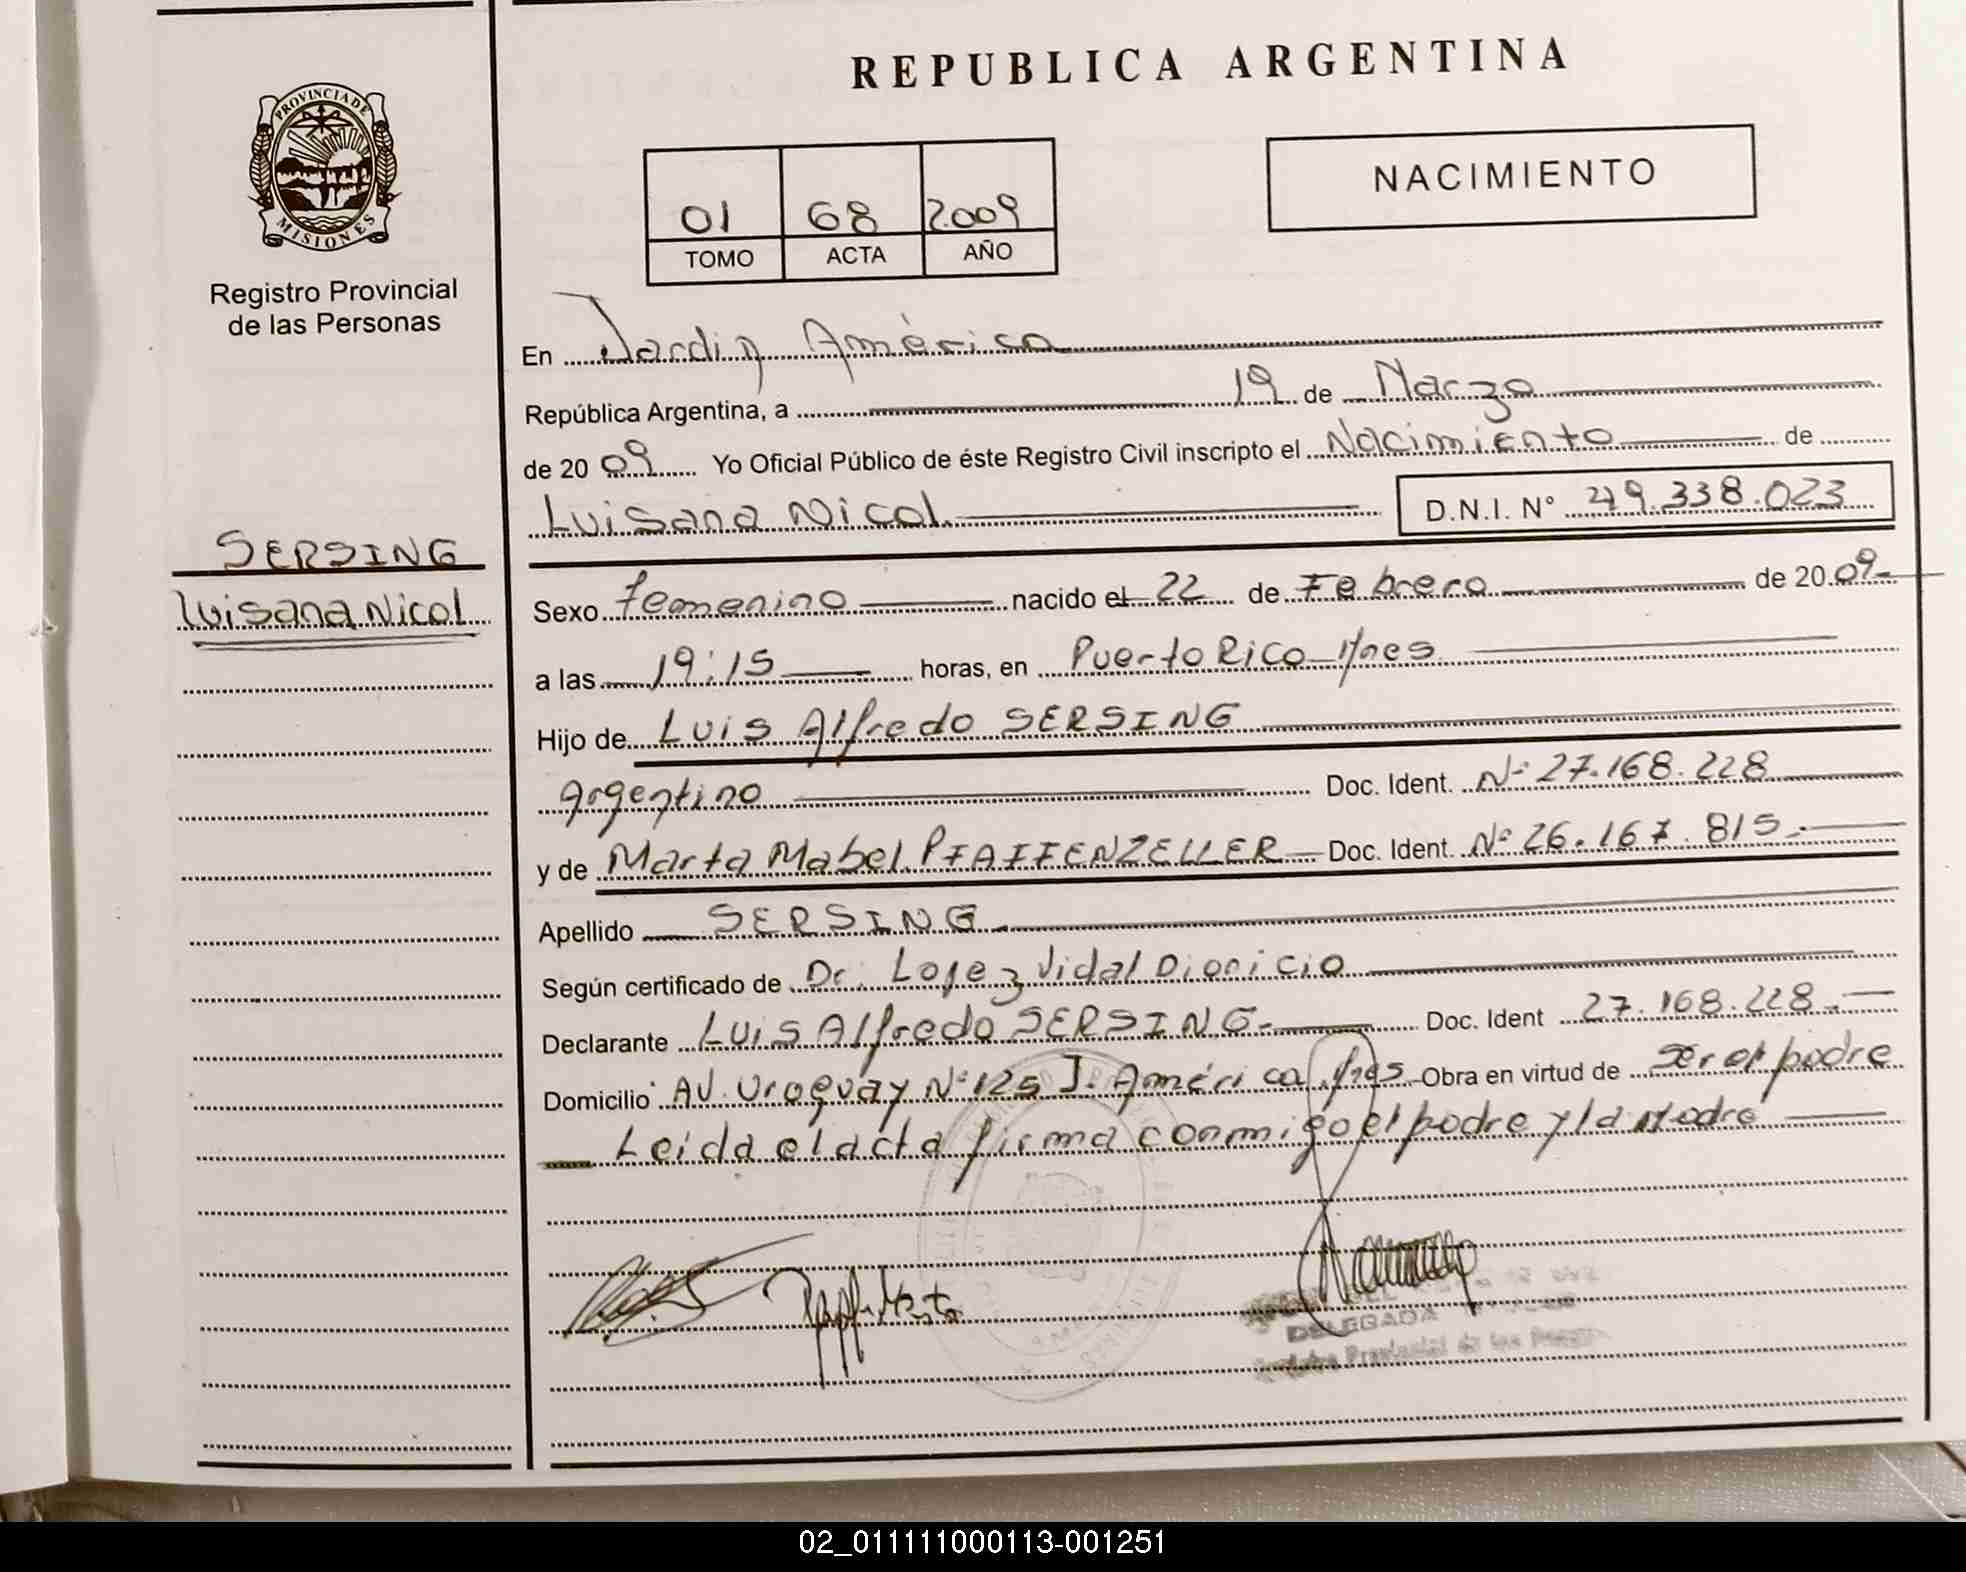 REPUBLICA ARGENTINA
PROVINCIA DE
MISIONES
Registro Provincial
de las Personas
SERSING
Luisana Nicol
01 68 2009
TOMO ACTA AÑO
NACIMIENTO
En Jardin América
República Argentina, a 19 de Marzo
de 2009 Yo Oficial Público de éste Registro Civil inscripto el Nacimiento de
Luisana Nicol D.N.I. N° 49.338.023
Sexo femenino nacido el 22 de Febrero de 2009
a las 19:15 horas, en Puerto Rico Mnes
Hijo de Luis Alfredo SERSING
argentino Doc. Ident. N° 27.168.228
y de Marta Mabel PFAIFFENZELLER Doc. Ident. N° 26.167.815.-
Apellido SERSING
Según certificado de Dr. Lopez Vidal Dionicio
Declarante Luis Alfredo SERSING.- Doc. Ident 27.168.228.-
Domicilio Av. Uruguay N° 125 J. América Mnes Obra en virtud de ser el padre
Leida el acta firma conmigo el padre y la Madre
DELEGADA
Provincial de las
02_011111000113-001251